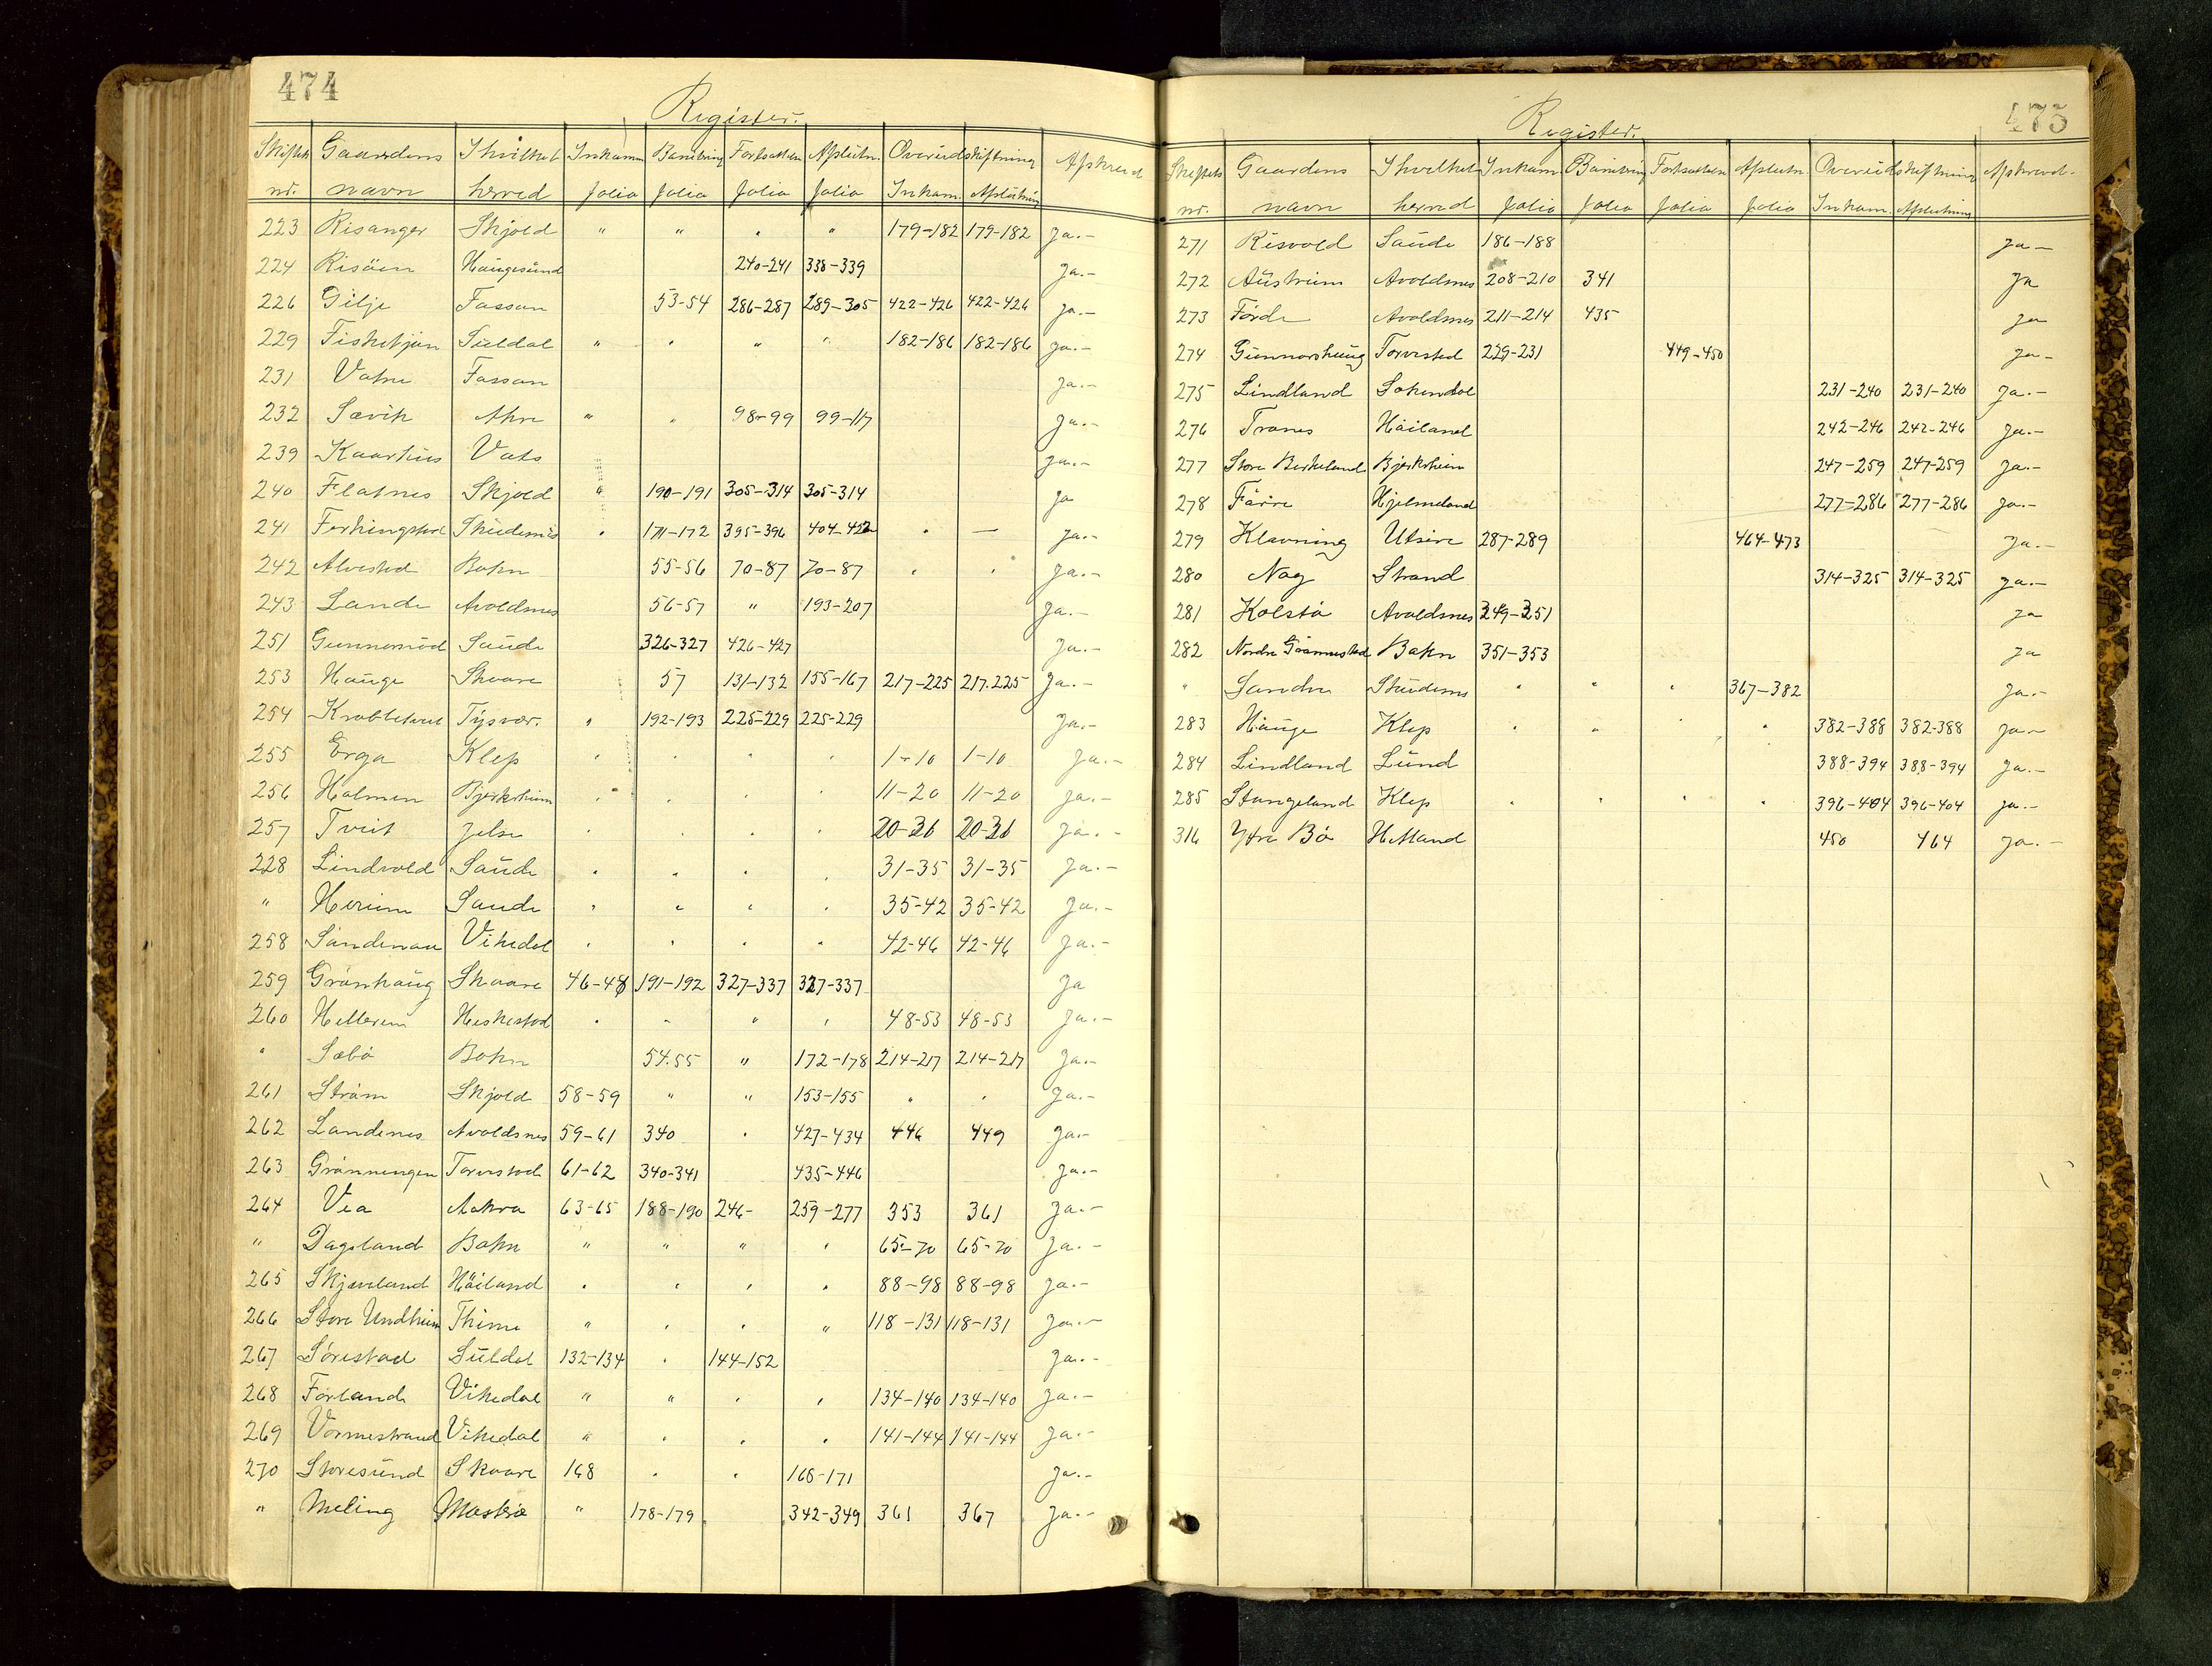 474
Register.
Skiftets Gaardens I hvilket Inkam. Bonitering Fortsættelse Afslutn. Overudskiftning Afskrevet
nr. navn herred folio folio folio folio Inkam. Afslutning
223 Risanger Skjold " " " " 179-182 179-182 Ja.-
224 Risöen Haugesund 240-241 338-339 Ja.-
226 Gilje Fossan 53-54 286-287 289-305 422-426 422-426 Ja.-
229 Fisketjön Suldal " " " " 182-186 182-186 Ja.-
231 Vatne Fossan Ja.-
232 Sævik Akre " " 98-99 99-117 Ja.-
239 Kaarhus Vats Ja.-
240 Flatnes Skjold " 190-191 305-314 305-314 Ja
241 Ferkingstad Skudenes " 171-172 395-396 404-422 " — Ja.-
242 Alvestad Bokn 55-56 70-87 70-87 " " Ja.-
243 Lande Avoldsnes 56-57 " 193-207 Ja.-
251 Gunnemöd Saude 326-327 426-427 Ja.-
253 Hauge Skaare 57 131-132 155-167 217-225 217.225 Ja.-
254 Krabbetveit Tysvær. " 192-193 225-229 225-229 Ja.-
255 Erga Klep " " " " 1-10 1-10 Ja.-
256 Holmen Bjerkrheim " " " " 11-20 11-20 Ja.-
257 Tveit Jelse " " " " 20-31 20-31 Ja.-
228 Lindvold Saude " " " " 31-35 31-35 Ja.-
" Herum Saude " " " " 35-42 35-42 Ja.-
258 Sandenaa Vikedal " " " " 42-46 42-46 Ja.-
259 Grönhaug Skaare 46-48 191-192 327-337 327-337 Ja
260 Helleren Heskestad " " " " 48-53 48-53 Ja.-
" Sæbö Bokn 54.55 " 172-178 214-217 214-217 Ja.-
261 Ström Skjold 58-59 " " 153-155 " " Ja.-
262 Landenes Avoldsnes 59-61 340 " 427-434 446 449 Ja.-
263 Grönningen Torvestad 61-62 340-341 435-446 Ja.-
264 Vea Aakra 63-65 188-190 246- 259-277 353 361 Ja.-
" Dagsland Bokn " " " " 65-70 65-70 Ja.-
265 Skjæveland Höiland " " " " 88-98 88-98 Ja.-
266 Store Undheim Thime " " " " 118-131 118-131 Ja.-
267 Sörestad Suldal 132-134 " 144-152 Ja.-
268 Förland Vikedal " " " " 134-140 134-140 Ja.-
269 Vormestrand Vikedal " " " " 141-144 141-144 Ja.-
270 Storesund Skaare 168 " " 168-171 Ja.-
" Meling Mosterö " 178-179 342-349 361 367 Ja.-
475
Register.
Skiftets Gaardens I hvilket Inkam. Bonitering Fortsættelse Afslutn. Overudskiftning Afskrevet.
nr. navn herred folio folio folio folio Inkam. Afslutning
271 Risvold Saude 186-188 Ja-
272 Austreim Avoldsnes 208-210 341 Ja
273 Förde Avoldsnes 211-214 435 Ja
274 Gunnarshaug Torvestad 229-231 449-450 Ja-
275 Lindland Sokendal 231-240 231-240 Ja.-
276 Tranes Höiland 242-246 242-246 Ja.-
277 Store Birkeland Bjerkrheim 247-259 247-259 Ja.-
278 Hjelmeland 277-286 277-286 Ja.-
279 Klovning Utsire 287-289 464-473 Ja.-
280 Nag Strand 314-325 314-325 Ja.-
281 Kolstö Avaldsnes 349-351 Ja
282 Nordre Grönnestad Bokn 351-353 Ja
" Sandve Skudenes " " " 367-382 Ja.-
283 Hauge Klep " " " " 382-388 382-388 Ja-
284 Lindland Lund 388-394 388-394 Ja.-
285 Stangeland Klep " " " " 396-404 396-404 Ja.-
316 Ytre Bö Hetland 450 464 Ja.-